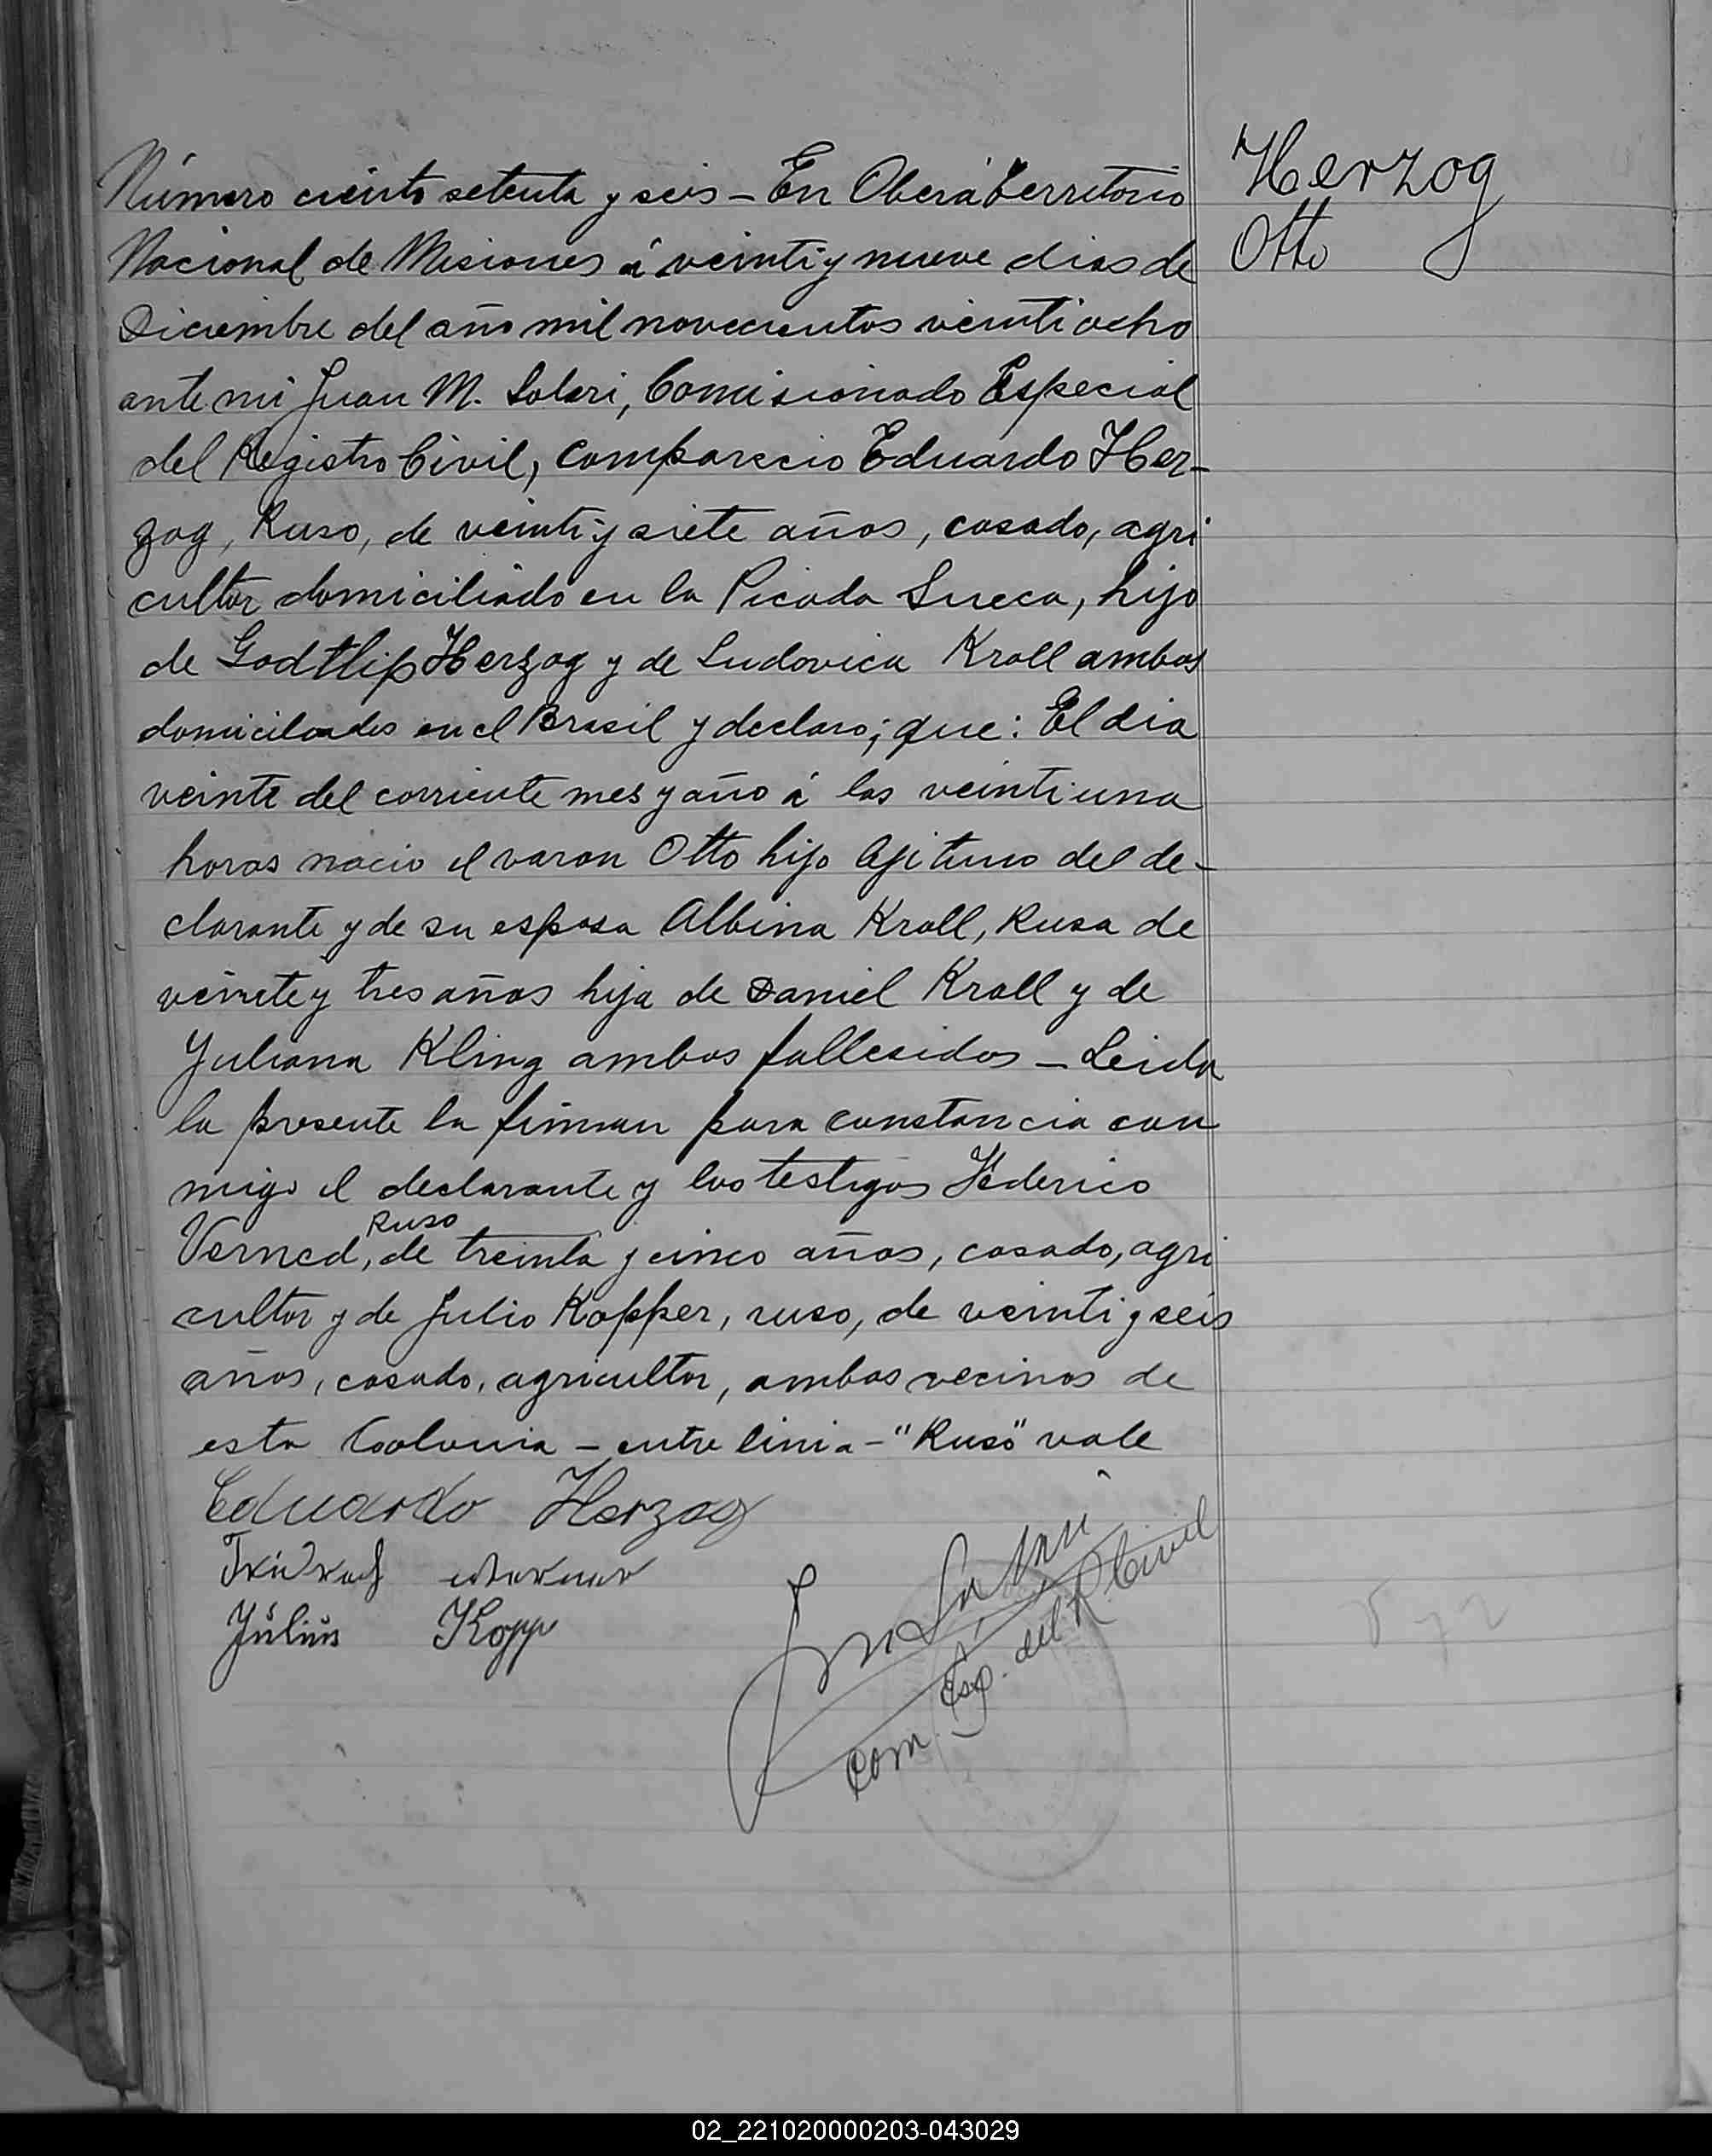 Número ciento setenta y seis - En Oberá Territorio
Nacional de Misiones á veinti y nueve dias de
Diciembre del año mil novecientos veintiocho
ante mi Juan M. Solari, Comisionado Especial
del Registro Civil, comparecio Eduardo Her-
zog, Ruso, de veinti y siete años, casado, agri
cultor domiciliado en la Picada Sueca, hijo
de Godtlip Herzog y de Ludovica Kroll ambos
domiciliados en el Brasil y declaro; que: El dia
veinte del corriente mes y año á las veintiuna
horas nacio el varon Otto hijo lejitimo del de-
clarante y de su esposa Albina Kroll, Rusa de
veinte y tres años hija de Daniel Kroll y de
Juliana Kling ambos fallesidos - Leida
la presente la firman para constancia con
migo el declarante y los testigos Federico
Verned, Ruso de treinta y cinco años, casado, agri
cultor y de Julio Kopper, ruso, de veinti y seis
años, casado, agricultor, ambos vecinos de
esta Coolonia - entre linia - "Ruso" vale
Eduardo Herzog
Julius Kopp
Com. Esp. del R. Civil
Herzog
Otto
02_221020000203-043029